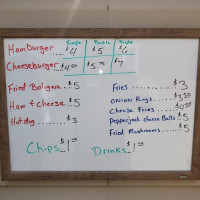 Single Double Triple
Hamburger $4 $5 $6
Cheeseburger $4.50 $5.75 $7
Fried Bologna .. $5
Ham & Cheese .. $5
Hotdog ... $3
Fries ... $3
Onion Rings .. $3.50
Cheese Fries ... $4.50
Pepperjack Cheese Balls $5
Fried Mushrooms .. $5
Chips .. $1.00
Drinks .. $1.00